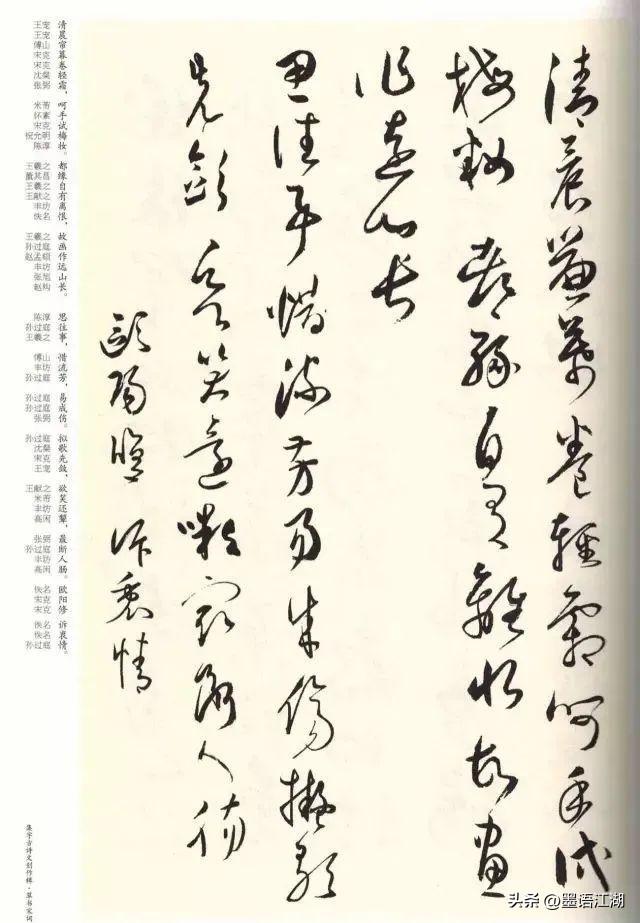 清晨簾幕卷輕霜呵手試
梅妝都緣自有離恨故畫
作遠山長
思往事惜流芳易成傷擬歌
先斂欲笑還顰最斷人腸
歐陽修 訴衷情
清晨帘幕卷轻霜，
王宠
王宠
傅山
宋克
宋克
沈粲
张弼
呵手试梅妆。
米芾
怀素
宋克
祝允明
陈淳
都缘自有离恨，
王羲之
董其昌
王羲之
王献之
丰坊
佚名
故画作远山长。
王羲之
孙过庭
赵孟頫
丰坊
张旭
赵构
思往事，
陈淳
孙过庭
王羲之
惜流芳，
傅山
丰坊
孙过庭
易成伤。
孙过庭
孙过庭
张弼
拟歌先敛，
孙过庭
沈粲
宋克
王宠
欲笑还颦，
王献之
米芾
丰坊
高闲
最断人肠。
张弼
孙过庭
丰坊
高闲
欧阳修
佚名
宋克
宋克
诉衷情。
佚名
佚名
孙过庭
集字古诗文创作辑·草书宋词
头条 @墨语江湖